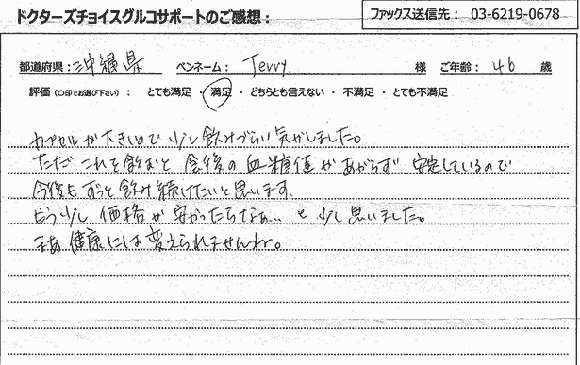 ドクターズチョイスグルコサポートのご感想：
ファックス送信先： 03-6219-0678
都道府県：沖縄県 ペンネーム： Jerry 様 ご年齢： 46 歳
評価（〇印でお選び下さい）： とても満足 ・ 満足 ・ どちらとも言えない ・ 不満足 ・ とても不満足
カプセルが大きいので少し飲みづらい気がしました。
ただこれを飲むと食後の血糖値があがらず安定しているので
今後もずっと飲み続けたいと思います。
もう少し価格が安かったらなぁ… と少し思いました。
まあ健康には変えられませんね。